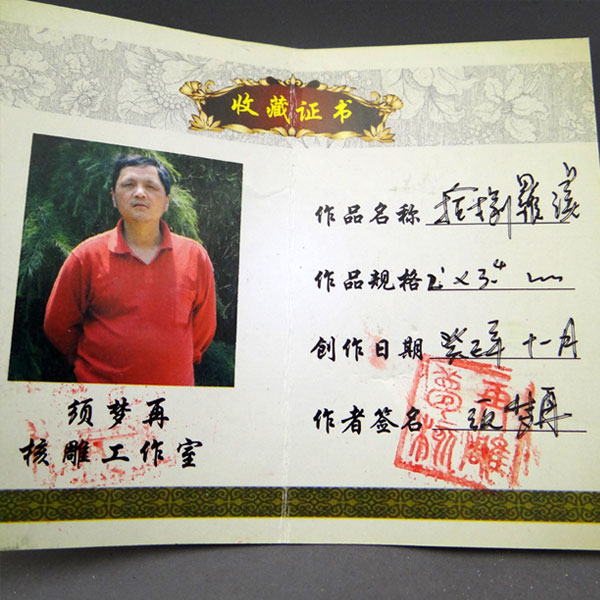 收藏证书
作品名称
作品规格 2 x 3.4
创作日期 癸巳年十一月
作者签名 须梦再
须梦再
核雕工作室